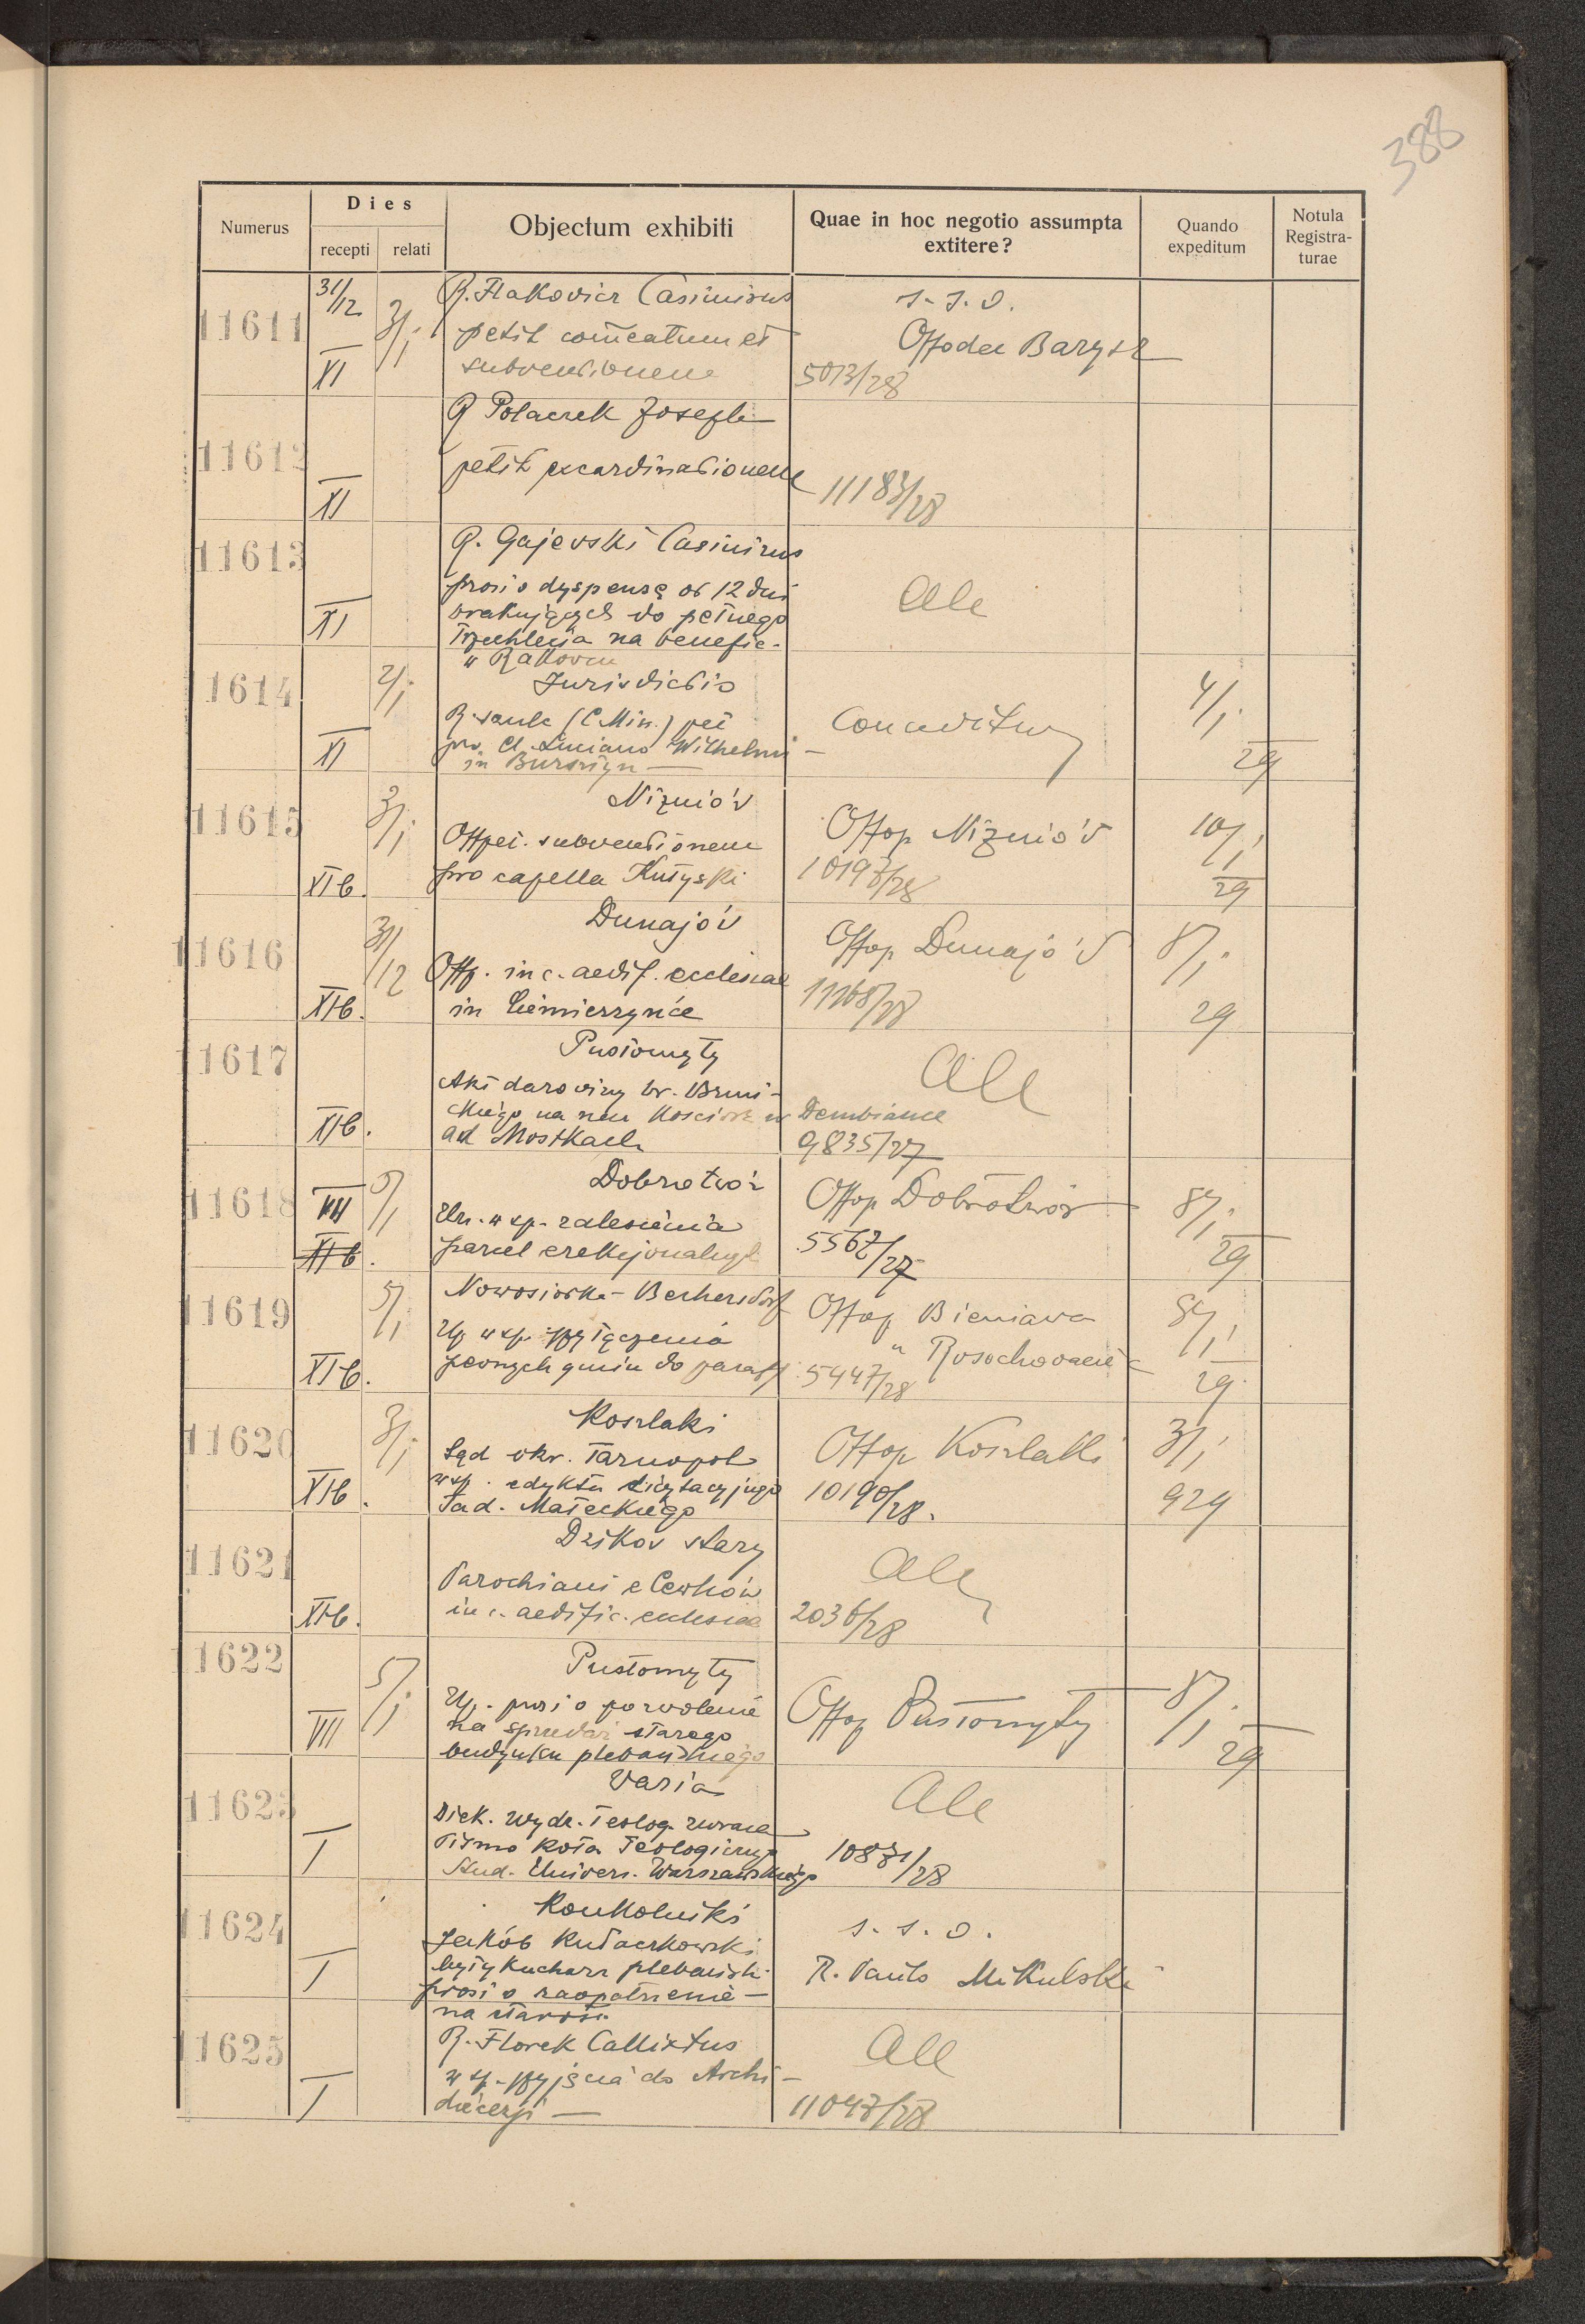 388
Numerus
Dies
recepti relati
Objectum exhibiti
Quae in hoc negotio assumpta
extitere?
Quando
expeditum
Notula
Registra-
turae
11611
31/12
3/1
XI
R. Flakovicz Casimirus
petit comeatum et
subventionem
s. s. o.
Offodec Barysz
5013/28
11612
XI
R Polaczek Joseph
petit excardinationem
11183/28
11613
XI
R. Gajevski Casimirus
prosi o dyspensę od 12 dni
brakujących do pełnego
Trzechlecia na benefic.
w Rakowcu
All
11614
2/1
XI
Jurisdictio
R. (C. Min.) pet
pro Cl. Luciano Wilhelmi
in Bursztyn —
Conceditur
4/1 29
11615
3/1
XI b.
Niżniów
Offpet. subventionem
pro capella Kutyski
Offop Niżniów
10/1 29
11616
31/12
XI b.
Dunajów
Offp. in c. aedif. ecclesiae
in Ciemierzyńce
Offop Dunajów
11168/28
8/1 29
11617
XI b.
Pustomyty
Akt darowizny br. Bruni-
ckiego na rzecz Kościoła w Dembiance
ad Mostkach
All
9835/27
11618
VII
XI b.
5/1
Dobrotwór
Urz. w sp. zalesienia
parcel erekcjonalnych
Offop Dobrotwór
5567/27
8/1 29
11619
5/1
XI b.
Nowosiołka - Beckersdorf
Up w sp. przyłączenia
pewnych gmin do parafji
Offop Bieniawa
" Rosochowaciec
5447/28
8/1 29
11620
3/1
XI b.
Koszlaki
Sąd okr. Tarnopol
w sp. edyktu licytacyjnego
Tad. Małeckiego
Offop Koszlaki
10190/28.
3/1
929
11621
XI b.
Dzików stary
Parochiani e Cewków
in c. aedific. ecclesiae
All
2036/28
11622
5/1
VII
Pustomyty
Up. prosi o pozwolenie
na sprzedaż starego
budynku plebańskiego
Offop Pustomyty
8/1 29
11623
I
Varia
Diek. Wydz. Teolog. zwraca
Pismo Koła Teologicznego
Stud. Univers. Warszawskiego
All
10871/28
11624
I
Konkolniki
Jakób Kułaczkowski
były kucharz plebański
prosi o zaopatrzenie —
na starość
s. s. o.
R. Paulo Mikulski
11625
I
R. Florek Callixtus
w sp. przyjęcia do Archi-
diecezji —
All
11047/28